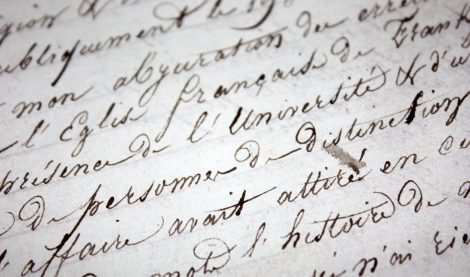 publiquement le
mon abjuration du
l'Eglise française de Frank
présence de l'Université & d'u
de personnes de distinction
affaire avait attiré en
l'histoire de
n'ai